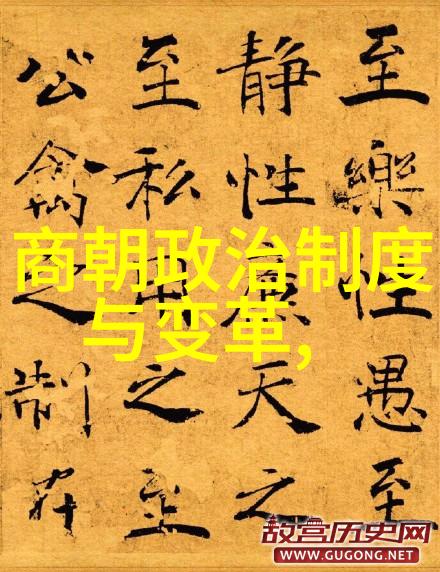 至樂性愚至
静性廉天之
至私用之至
公禽之制在
商朝政治制度
与变革,
故宫历史网
WWW.GUGONG.NET